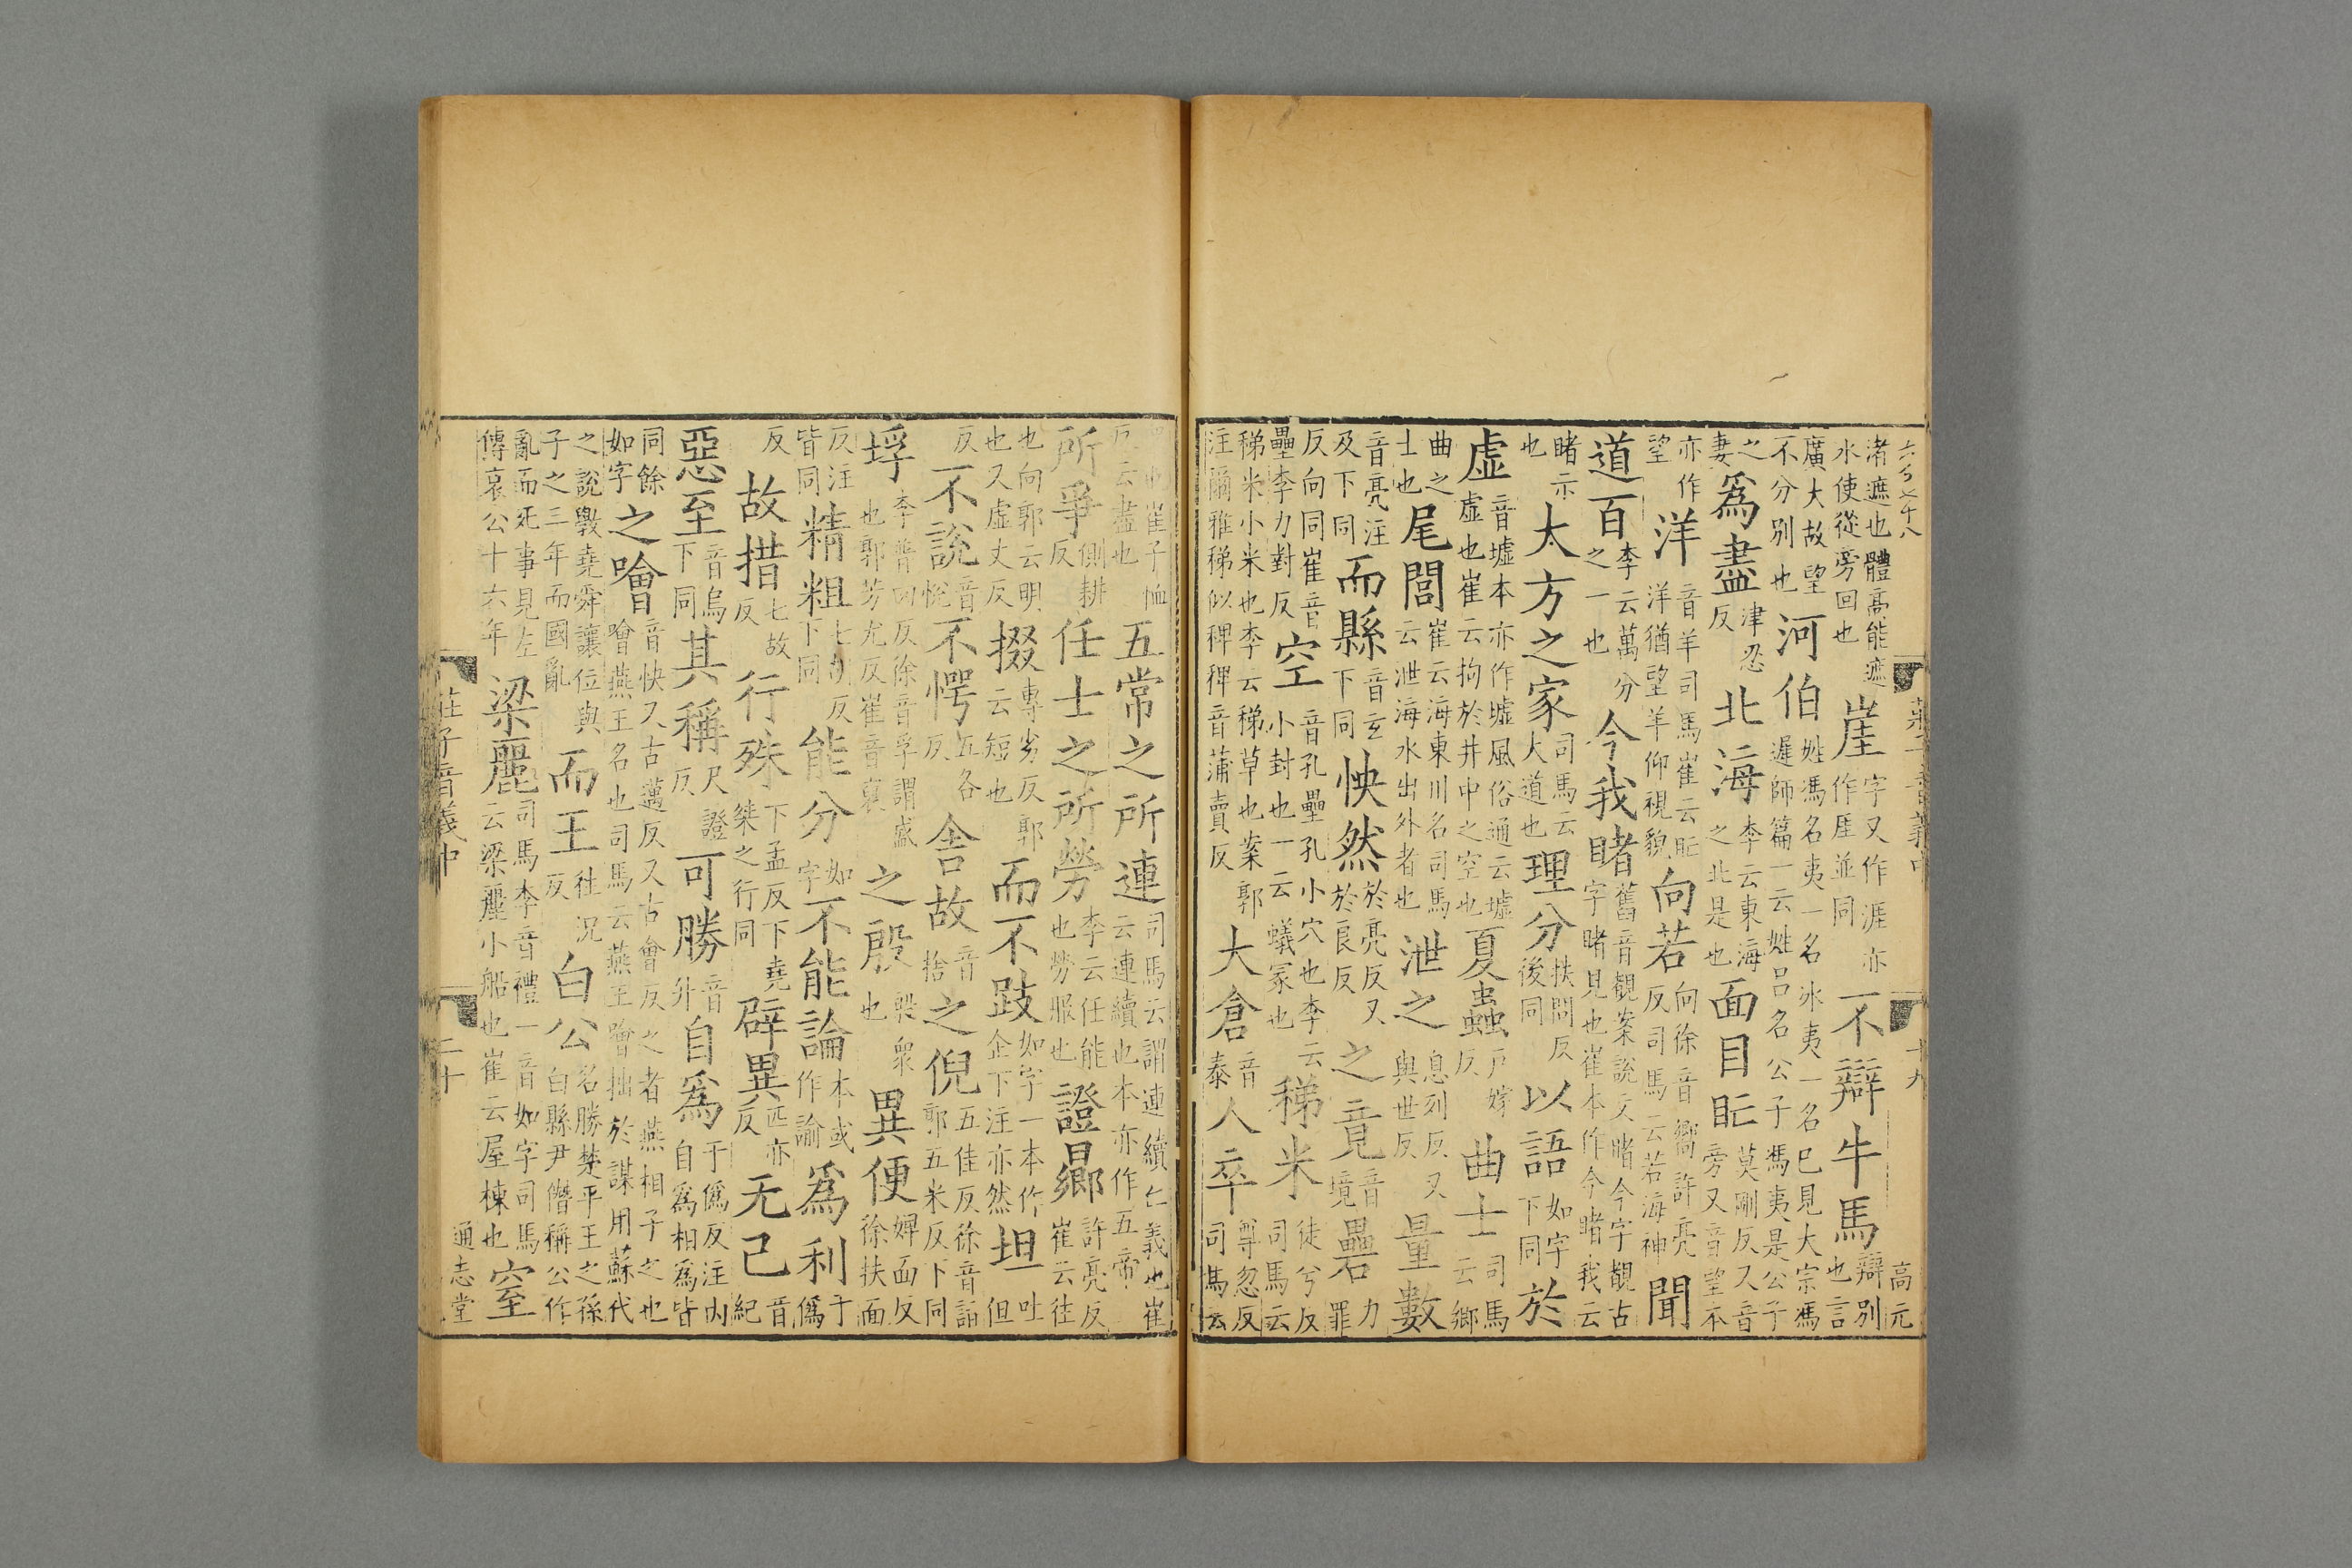 六百七十八 莊子音義中 十九 高元
渚遮也體高能遮水使從旁回也崖字又作涯亦作厓並同不辯牛馬辯別也言
廣大故望不分別也河伯姓馮名夷一名冰夷一名巳見大宗馮遲師篇一云姓吕名公子馮夷是公子
之妻爲盡津忍反北海李云東海之北是也面目盳莫剛反又音旁又音望本
亦作望洋音羊司馬崔云盳洋猶望羊仰視貌向若向徐音嚮許亮反司馬云若海神聞
道百李云萬分之一也今我睹舊音覩案說文睹今字覩古字睹見也崔本作今睹我云
睹示也太方之家司馬云大道也理分扶問反後同以語如字下同於
虛音墟本亦作墟風俗通云墟虛也崔云拘於井中之空也夏蟲戶嫁反曲士司馬云鄉
曲之士也尾閭崔云海東川名司馬云泄海水出外者也泄之息列反又與世反量數
音亮注及下同而縣音玄下同怏然於亮反又於良反之竟音境礨力罪
反向同崔音壘李力對反空音孔壘孔小穴也李云小封也一云蟻冢也稊米徒兮反司馬云
稊米小米也李云稊草也案郭注爾雅稊似稗稗音蒲賣反大倉音泰人卒尊忽反司馬云
也崔子恤反云盡也五常之所連司馬云謂連續仁義也崔云連續也本亦作五帝
所爭側耕反任士之所勞李云任能也勞服也證曏許亮反崔云往
也向郭云明也又虛丈反掇專劣反郭云短也而不跂如字一本作企下注亦然坦吐但
反不說音悅不愕五各反舍故音捨之倪五佳反徐音詣郭五米反下同
垺李普回反徐音孚謂盛也郭芳尤反崔音裒之殷殷衆也異便婢面反徐扶面
反注皆同精粗七胡反下同能分如字不能論本或作諭爲利于僞
反故措七故反行殊下孟反下堯桀之行同辟異匹亦反无己音紀
惡至音烏下同其稱尺證反可勝音升自爲于僞反注內自爲相爲皆
同餘如字之噲音快又古邁反又古會反之者燕相子之也噲燕王名也司馬云燕王噲拙於謀用蘇代
之說斆堯舜讓位與子之三年而國亂而王往況反白公名勝楚平王之孫白縣尹僭稱公作
亂而死事見左傳哀公十六年梁麗司馬李音禮一音如字司馬云梁麗小船也崔云屋棟也窒
莊子音義中 二十 通志堂